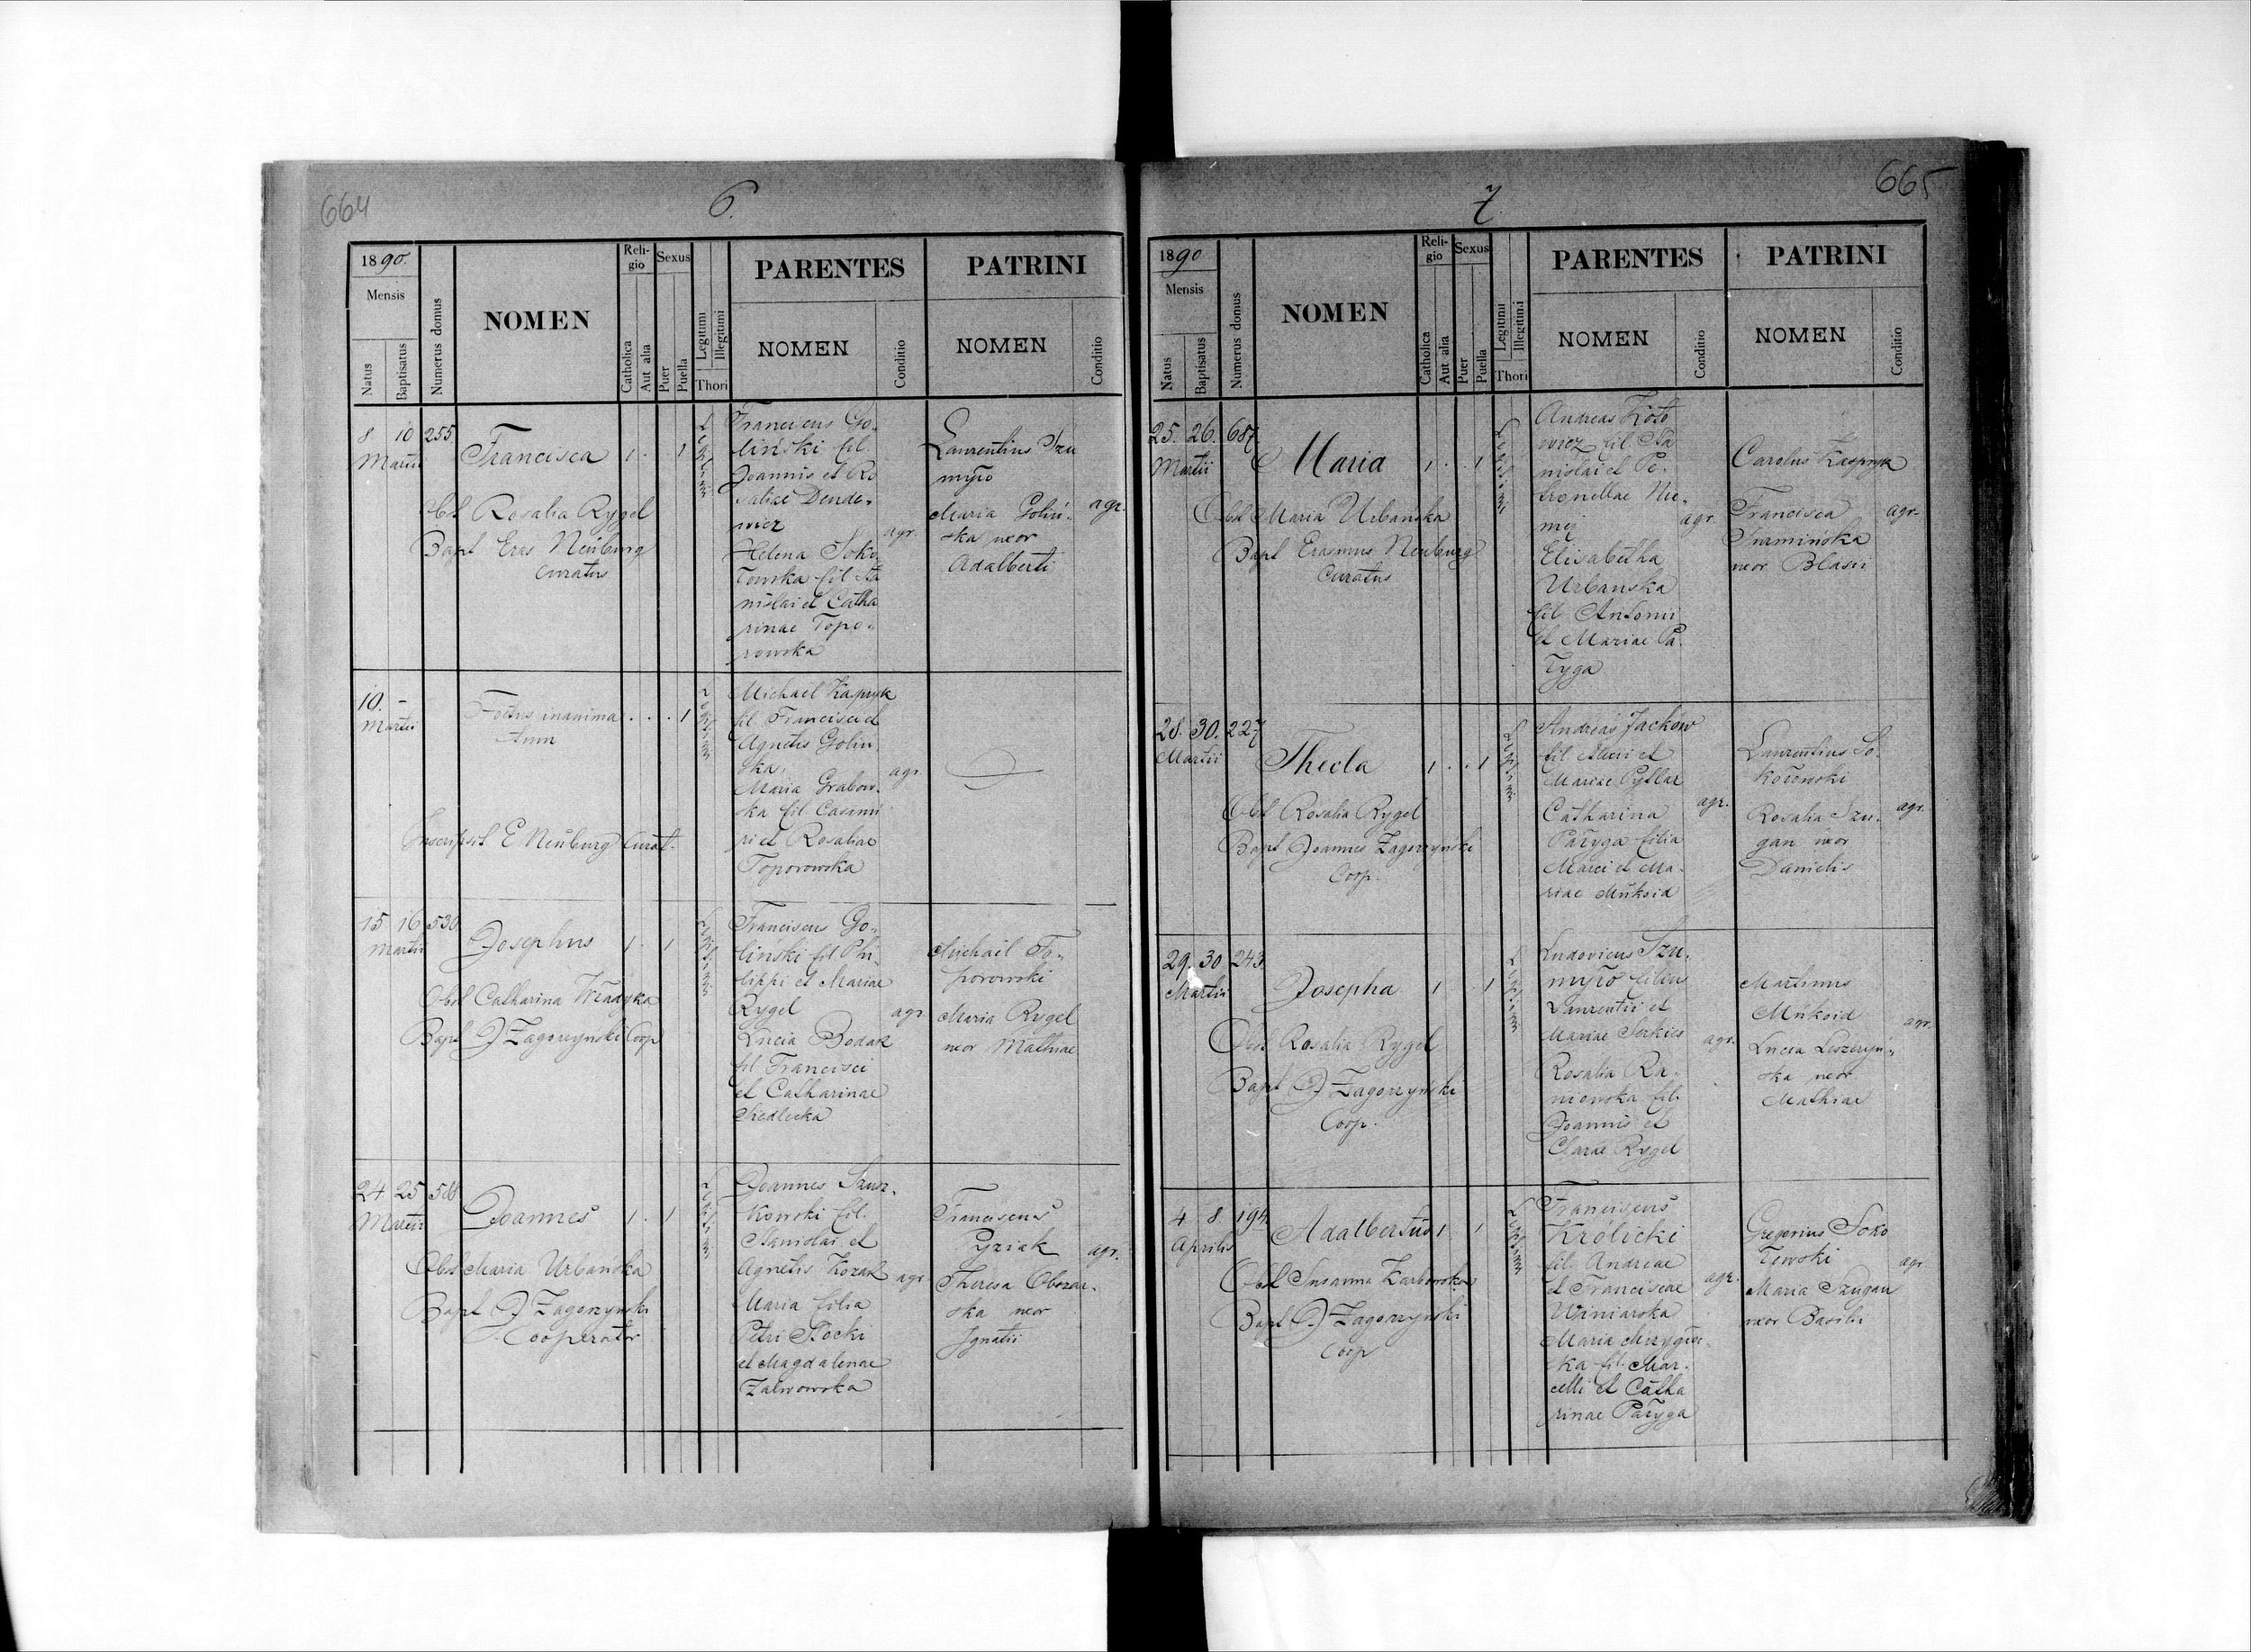 664
6.
1890
Mensis
Natus
Baptisatus
Numerus domus
NOMEN
Reli-
gio
Catholica
Aut alia
Sexus
Puer
Puella
Legitimi
Illegitimi
Thori
PARENTES
NOMEN
Conditio
PATRINI
NOMEN
Conditio
8 10 255
Martii
Francisca
1 . . 1
Obst Rosalia Rygel
Bapt Eras Neuburg
Curatus
Franciscus Go-
liński fil.
Joannis et Ro
saliae Dende-
wicz
Helena Soko
łowska fil. Sta
nislai et Catha
rinae Topo-
rowska
agr.
Laurentius Szu
myło
Maria Goliń-
ska uxor
Adalberti
agr.
10. -
Martii
Foetus inanima
tum
. . . 1
Inscripsit E Neuburg Curat.
Michael Kapryk
fil Francisci et
Agnetis Goliń
ska,
Maria Grabow-
ska fil. Casimi
ri et Rosaliae
Toporowska
agr.
15 16 530
Martii
Josephus
1 . 1
Obst Catharina Władyka
Bapt J Zagorzyński Coop
Franciscus Go-
liński fil. Phi-
lippi et Mariae
Rygel
Lucia Bodak
fil Francisci
et Catharinae
Siedlecka
agr
Michael To-
porowski
Maria Rygel
uxor Mathiae
24 25
Martii
Joannes
1 . 1
Obst Maria Urbańska
Bapt J Zagorzyński
Cooperator
Joannes Szusz-
kowski fil.
Stanislai et
Agnetis Kozak
Maria filia
Petri Stocki
et Magdalenae
agr
Franciscus
Pyziak
Theresa Obozar-
ska uxor
Ignatii
agr.
665
7.
1890
Mensis
Natus
Baptisatus
Numerus domus
NOMEN
Reli-
gio
Catholica
Aut alia
Sexus
Puer
Puella
Legitimi
Illegitimi
Thori
PARENTES
NOMEN
Conditio
PATRINI
NOMEN
Conditio
25. 26. 687.
Martii
Maria
1 . . 1
Obst Maria Urbańska
Bapt Erasmus Neuburg
Curatus
Andreas Koto
wicz fil Sta
nislai et Pe-
tronellae Nie-
mej
Elisabetha
Urbanska
fil. Antonii
et Mariae Pa-
łyga
agr
Carolus Kaspryk
Francisca
Surmińska
uxor Blasii
agr.
28. 30. 227
Martii
Thecla
1 . . 1
Obst Rosalia Rygel
Bapt Joannes Zagorzyński
Coop.
Andreas Jackow
fil et
Mariae Pyllar
Catharina
Pałyga filia
Marci et Ma-
riae Mukoid
agr.
Laurentius So-
kołowski
Rosalia Szu-
gan uxor
Danielis
agr.
29. 30 243
Martii
Josepha
1 . 1
Obst Rosalia Rygel
Bapt J Zagorzyński
Coop.
Ludovicus Szu-
myło filius
Laurentii et
Mariae Serkies
Rosalia Ra-
niowska fil.
Joannis et
Clarae Rygel
agr.
Martinus
Mukoid
Lucia Leszczyń-
ska uxor
Mathiae
agr.
4 8. 194
Aprilis
Adalbertus
1 1
Obst Susanna Karbowska
Bapt J Zagorzyński
Coop
Franciscus
Królicki
fil. Andreae
et Franciscae
Winiarska
Maria Mrzygło
ska fil. Mar-
celli et Catha
rinae Pałyga
agr.
Gregorius Soko
łowski
Maria Szugan
uxor Basilii
agr.